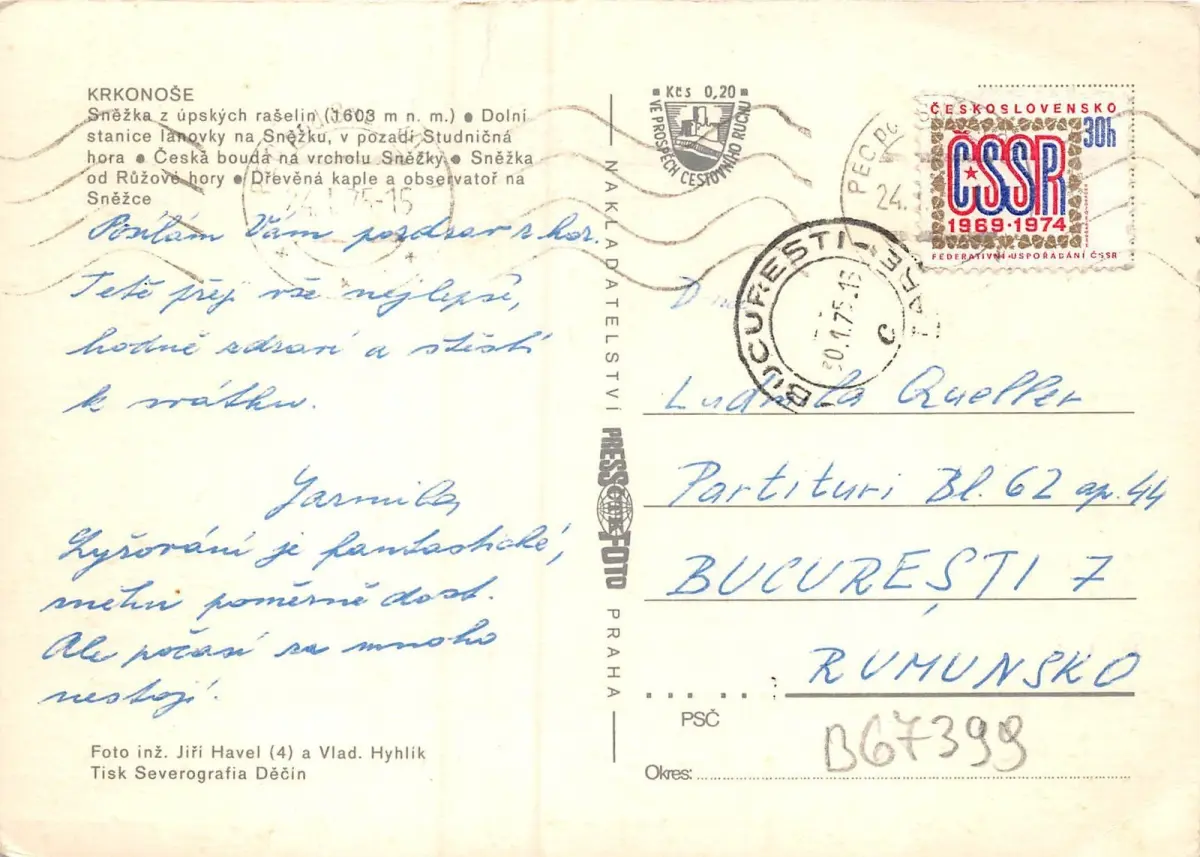 KRKONOŠE
Sněžka z úpských rašelin (1603 m n. m.) • Dolní
stanice lanovky na Sněžku, v pozadí Studničná
hora • Česká bouda na vrcholu Sněžky • Sněžka
od Růžové hory • Dřevěná kaple a observatoř na
Sněžce
24.1.75-15
Posílám Vám pozdrav z hor.
Tetě přeji vše nejlepší,
hodně zdraví a štěstí
k svátku.
Jarmila
Lyžování je fantastické,
sněhu poměrně dost.
Ale počasí za mnoho
nestojí.
Foto inž. Jiří Havel (4) a Vlad. Hyhlík
Tisk Severografia Děčín
NAKLADATELSTVÍ
PRESSFOTO
PRAHA
Kčs 0,20
VE PROSPĚCH CESTOVNÍHO RUCHU
PEC PO
24.
ČESKOSLOVENSKO
30h
ČSSR
1969·1974
FEDERATIVNÍ USPOŘÁDÁNÍ ČSSR
BUCUREȘTI
30.1.75-16
C
Ludmila Queller
Partituri Bl. 62 ap. 44
BUCUREȘTI 7
RUMUNSKO
PSČ
B67399
Okres: